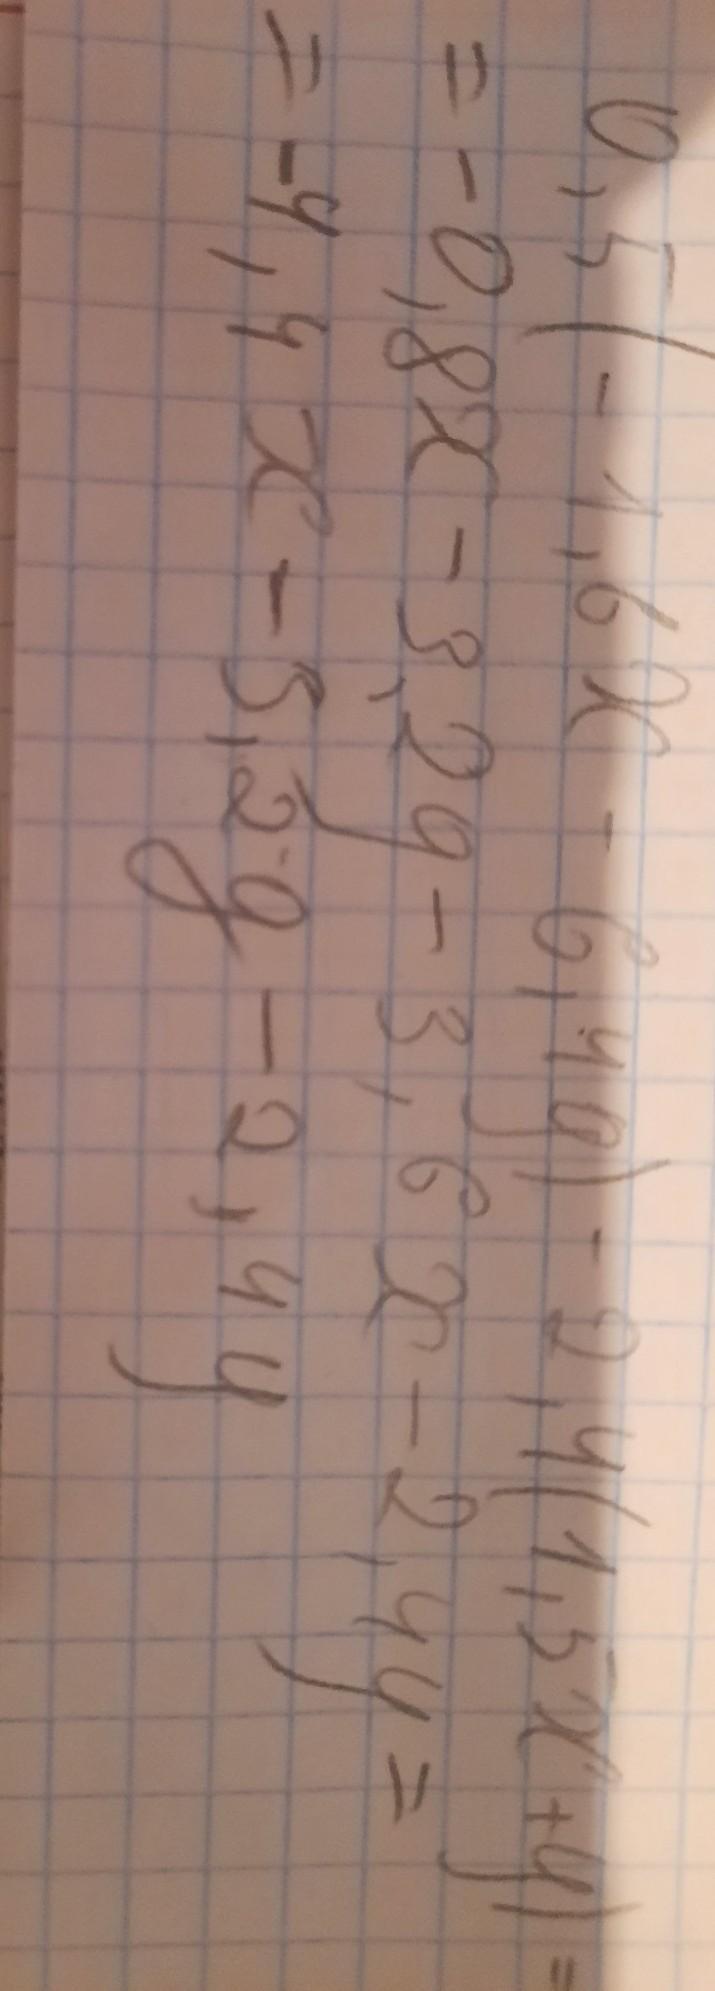 0,5(-1,6x - 6,4y) - 2,4(1,5x+y) =
= -0,8x - 3,2y - 3,6x - 2,4y =
= -4,4x - 5,2y - 2,4y